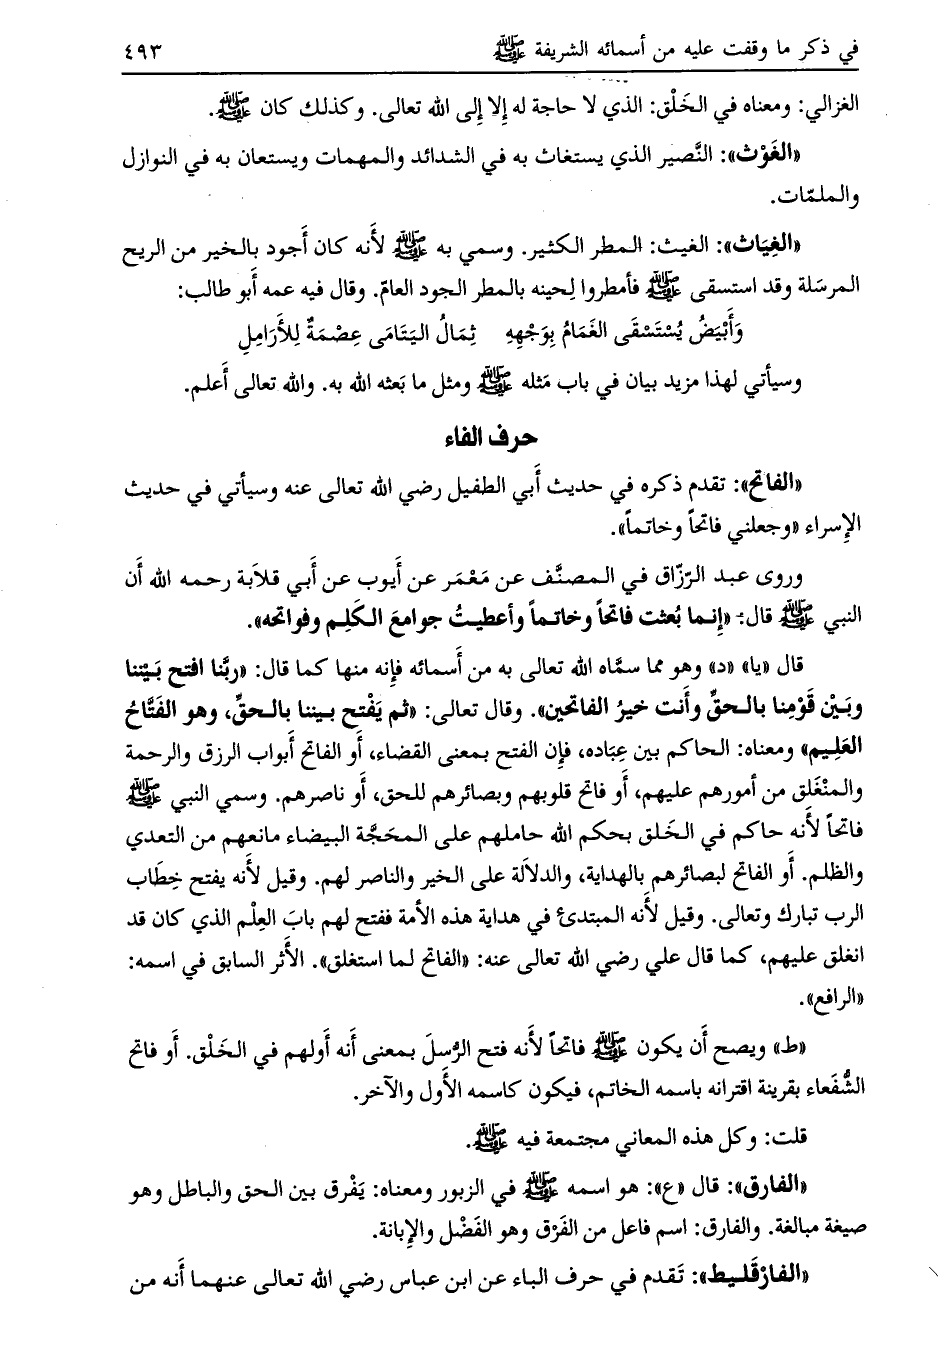 في ذكر ما وقفت عليه من أسمائه الشريفة ﷺ ٤٩٣
الغزالي: ومعناه في الخَلْق: الذي لا حاجة له إِلا إِلى الله تعالى. وكذلك كان ﷺ.
«الغَوْث»: النَّصير الذي يستغاث به في الشدائد والمهمات ويستعان به في النوازل
والملمّات.
«الغِيَاث»: الغيث: المطر الكثير. وسمي به ﷺ لأَنه كان أَجود بالخير من الريح
المرسَلة وقد استسقى ﷺ فأمطروا لِحينه بالمطر الجود العامّ. وقال فيه عمه أَبو طالب:
وَأَبْيَضُ يُسْتَسْقَى الغَمَامُ بِوَجْهِهِ ثِمَالُ اليَتَامَى عِصْمَةٌ لِلأَرَامِلِ
وسيأتي لهذا مزيد بيان في باب مَثله ﷺ ومثل ما بَعثه الله به. والله تعالى أَعلم.
حرف الفاء
«الفاتح»: تقدم ذكره في حديث أَبي الطفيل رضي الله تعالى عنه وسيأتي في حديث
الإِسراء «وجعلني فاتحاً وخاتماً».
وروى عبد الرّزّاق في المصنَّف عن مَعْمَر عن أَيوب عن أَبي قلاَبة رحمه الله أَن
النبي ﷺ قال: «إِنما بُعثت فاتحاً وخاتماً وأعطيتُ جوامعَ الكَلِم وفواتحه».
قال «يا» «د» وهو مما سمَّاه الله تعالى به من أَسمائه فإِنه منها كما قال: «ربَّنا افتح بَيْننا
وبَيْن قَوْمِنا بالحقِّ وأَنت خيرُ الفاتحين». وقال تعالى: «ثم يَفْتح بيننا بالحقِّ، وهو الفَتَّاحُ
العَلِيم» ومعناه: الحاكم بين عِبَاده، فإِن الفتح بمعنى القضاء، أَو الفاتح أَبواب الرزق والرحمة
والمنْغَلق من أمورهم عليهم، أَو فاتح قلوبهم وبصائرهم للحق، أَو ناصرهم. وسمي النبي ﷺ
فاتحاً لأَنه حاكم في الخَلق بحكم الله حاملهم على المحَجَّة البيضاء مانعهم من التعدي
والظلم. أَو الفاتح لبصائرهم بالهداية، والدلاَلة على الخير والناصر لهم. وقيل لأَنه يفتح خِطَاب
الرب تبارك وتعالى. وقيل لأَنه المبتدئ في هداية هذه الأمة ففتح لهم بابَ العِلْم الذي كان قد
انغلق عليهم، كما قال علي رضي الله تعالى عنه: «الفاتح لما استغلق». الأَثر السابق في اسمه:
«الرافع».
«ط» ويصح أَن يكون ﷺ فاتحاً لأَنه فتح الرُّسلَ بمعنى أَنه أَولهم في الخَلْق. أَو فاتح
الشُّفَعاء بقرينة اقترانه باسمه الخاتم، فيكون كاسمه الأَول والآخر.
قلت: وكل هذه المعاني مجتمعة فيه ﷺ.
«الفارق»: قال «ع»: هو اسمه ﷺ في الزبور ومعناه: يَفْرق بين الحق والباطل وهو
صيغة مبالغة. والفارق: اسم فاعل من الفَرْق وهو الفَصْل والإِبانة.
«الفارْقَليط»: تَقدم في حرف الباء عن ابن عباس رضي الله تعالى عنهما أَنه من